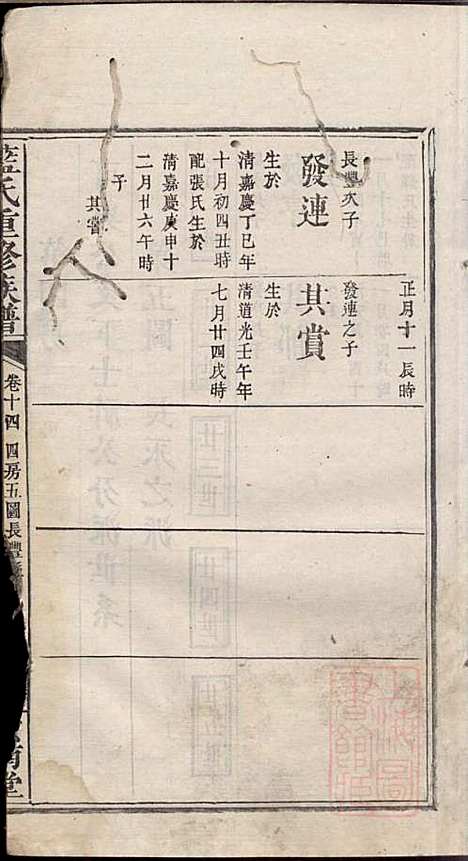 正月十一辰時
長豐次子
發連
生於
清嘉慶丁巳年
十月初四丑時
配張氏生於
清嘉慶庚申十
二月廿六午時
子
其賞
發連之子
其賞
生於
清道光壬午年
七月廿四戌時
藍氏重修族譜
卷十四 四房五圖長豐
堂
上海圖書館藏